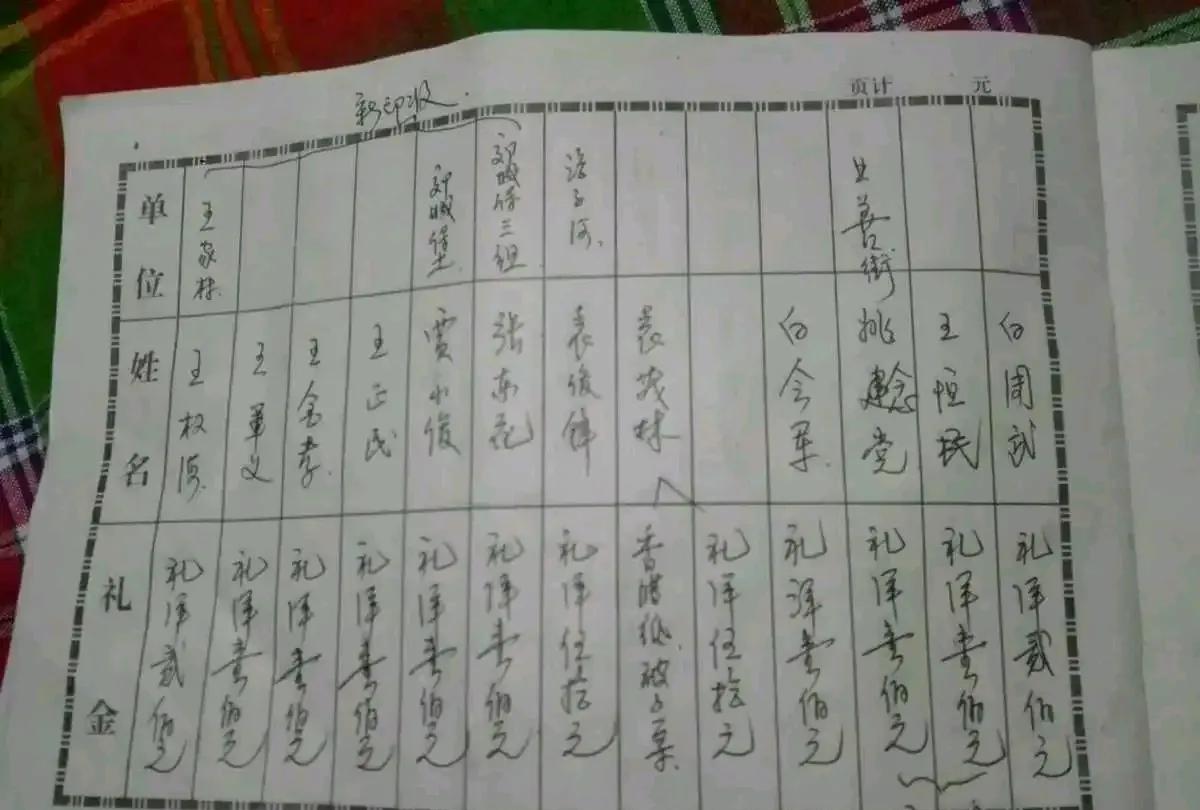 页计 元
单位
姓名
礼金
王家林
王权海
礼洋贰佰元
王军义
礼洋壹佰元
王金孝
礼洋壹佰元
王正民
礼洋壹佰元
郭城堡
贾小俊
礼洋壹佰元
郭城堡三组
张东花
礼洋壹佰元
袁俊锋
礼洋伍拾元
袁茂林
香腊纸
礼洋伍拾元
白会军
礼洋壹佰元
姚建党
礼洋壹佰元
王恒民
礼洋壹佰元
白周武
礼洋贰佰元